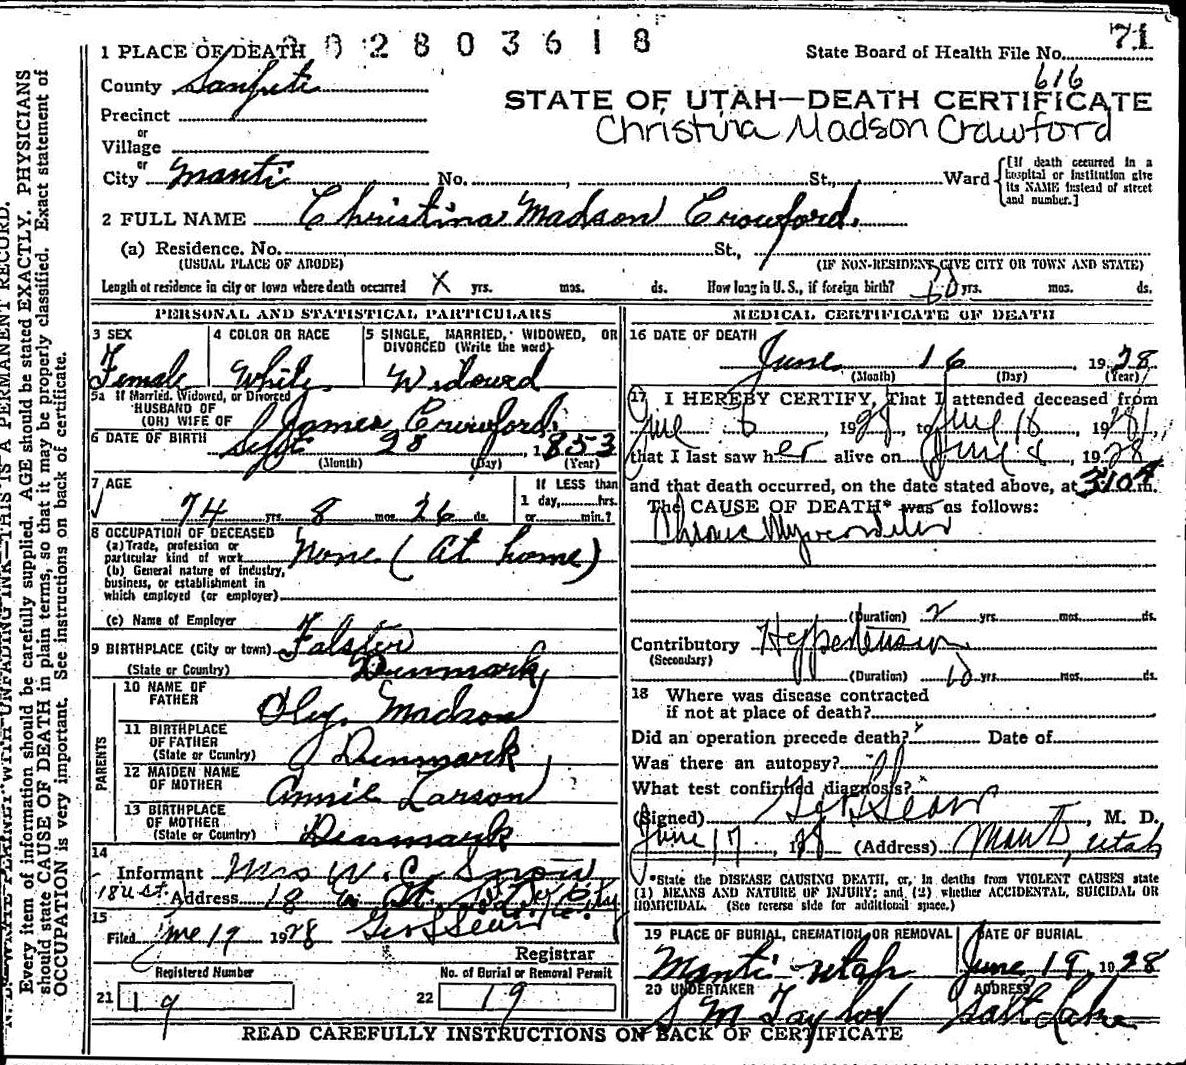 0 0 2 8 0 3 6 1 8
71
1 PLACE OF DEATH
State Board of Health File No.
616
County Sanpete
STATE OF UTAH—DEATH CERTIFICATE
Precinct
Christina Madson Crawford
or
Village
or
City Manti No. , St., Ward
[If death occurred in a hospital or institution give its NAME instead of street and number.]
2 FULL NAME Christina Madson Crawford.
(a) Residence. No. St.,
(USUAL PLACE OF ABODE) (IF NON-RESIDENT GIVE CITY OR TOWN AND STATE)
Length of residence in city or town where death occurred X yrs. mos. ds. How long in U. S., if foreign birth? yrs. mos. ds.
PERSONAL AND STATISTICAL PARTICULARS
3 SEX Female
4 COLOR OR RACE White
5 SINGLE, MARRIED, WIDOWED, OR DIVORCED (Write the word) Widowed
5a If Married, Widowed, or Divorced
HUSBAND OF
(OR) WIFE OF James Crawford.
6 DATE OF BIRTH Sept 28, 1853
(Month) (Day) (Year)
7 AGE 74 yrs. 8 mos. 26 ds.
If LESS than 1 day, hrs. or min.?
8 OCCUPATION OF DECEASED
(a) Trade, profession or particular kind of work None (At home)
(b) General nature of industry, business, or establishment in which employed (or employer)
(c) Name of Employer
9 BIRTHPLACE (City or town) Falster
(State or Country) Denmark
PARENTS
10 NAME OF FATHER Madson
11 BIRTHPLACE OF FATHER (State or Country) Denmark
12 MAIDEN NAME OF MOTHER Annie Larson
13 BIRTHPLACE OF MOTHER (State or Country) Denmark
14
Informant Mrs W. C. Snow
Address 18
15
Filed June 19 1928 Geo L Sears
Registrar
Registered Number
21 19
No. of Burial or Removal Permit
22 19
MEDICAL CERTIFICATE OF DEATH
16 DATE OF DEATH
June 16 1928
(Month) (Day) (Year)
17 I HEREBY CERTIFY, That I attended deceased from
June 6, 1928, to June 16, 1928,
that I last saw her alive on June , 1928
and that death occurred, on the date stated above, at 310 A m.
The CAUSE OF DEATH* was as follows:
Chronic Myocarditis
(Duration) 2 yrs. mos. ds.
Contributory Hypertension
(Secondary)
(Duration) 10 yrs. mos. ds.
18 Where was disease contracted
if not at place of death?
Did an operation precede death? Date of
Was there an autopsy?
What test confirmed diagnosis?
(Signed) Geo L Sears, M. D.
June 17, 1928 (Address) Manti, Utah
*State the DISEASE CAUSING DEATH, or, in deaths from VIOLENT CAUSES state
(1) MEANS AND NATURE OF INJURY; and (2) whether ACCIDENTAL, SUICIDAL OR
HOMICIDAL. (See reverse side for additional space.)
19 PLACE OF BURIAL, CREMATION OR REMOVAL Manti Utah
DATE OF BURIAL June 19, 1928
20 UNDERTAKER S M Taylor
ADDRESS Salt Lake
READ CAREFULLY INSTRUCTIONS ON BACK OF CERTIFICATE
N. B.—WRITE PLAINLY WITH UNFADING INK—THIS IS A PERMANENT RECORD.
Every item of information should be carefully supplied. AGE should be stated EXACTLY. PHYSICIANS
should state CAUSE OF DEATH in plain terms, so that it may be properly classified. Exact statement of
OCCUPATION is very important. See instructions on back of certificate.